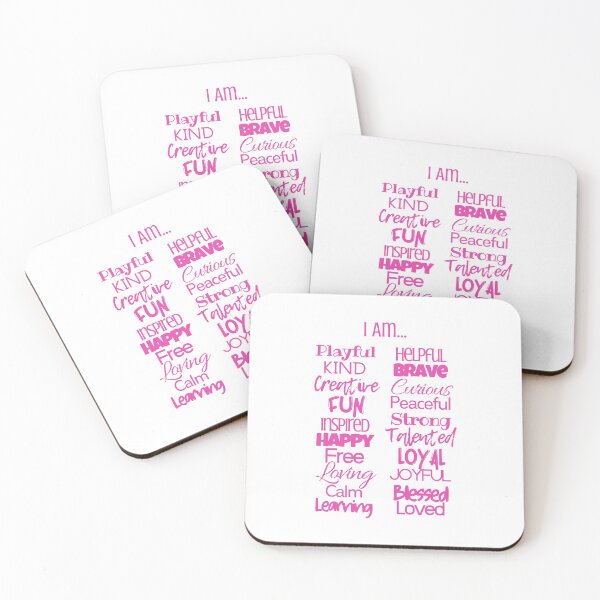 I AM...
Playful HELPFUL
KIND BRAVE
Creative Curious
FUN Peaceful
I AM...
Playful HELPFUL
KIND BRAVE
Creative Curious
FUN Peaceful
INSPIRED Strong
HAPPY Talented
Free LOYAL
I AM...
Playful HELPFUL
KIND BRAVE
Creative Curious
FUN Peaceful
INSPIRED Strong
HAPPY Talented
Free LOYAL
Loving JOYFUL
Calm
Learning
I AM...
Playful HELPFUL
KIND BRAVE
Creative Curious
FUN Peaceful
INSPIRED Strong
HAPPY Talented
Free LOYAL
Loving JOYFUL
Calm Blessed
Learning Loved